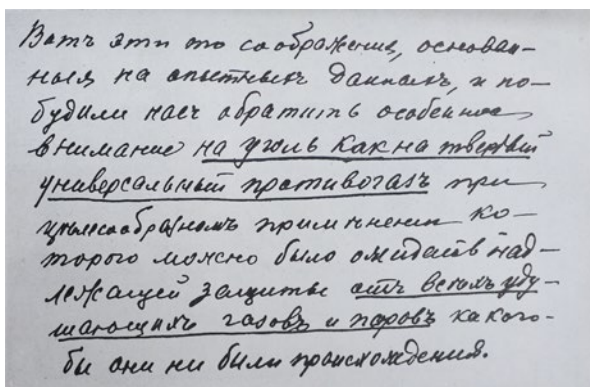 Вотъ эти то соображения, основан-
ныя на опытныхъ данныхъ, и по-
будили насъ обратить особенное
внимание на уголь какъ на твердый
универсальный противогазъ при
цѣлесообразномъ примѣнении ко-
торого можно было ожидать над-
лежащей защиты отъ всѣхъ уду-
шающихъ газовъ и паровъ какого-
бы они ни были происхождения.